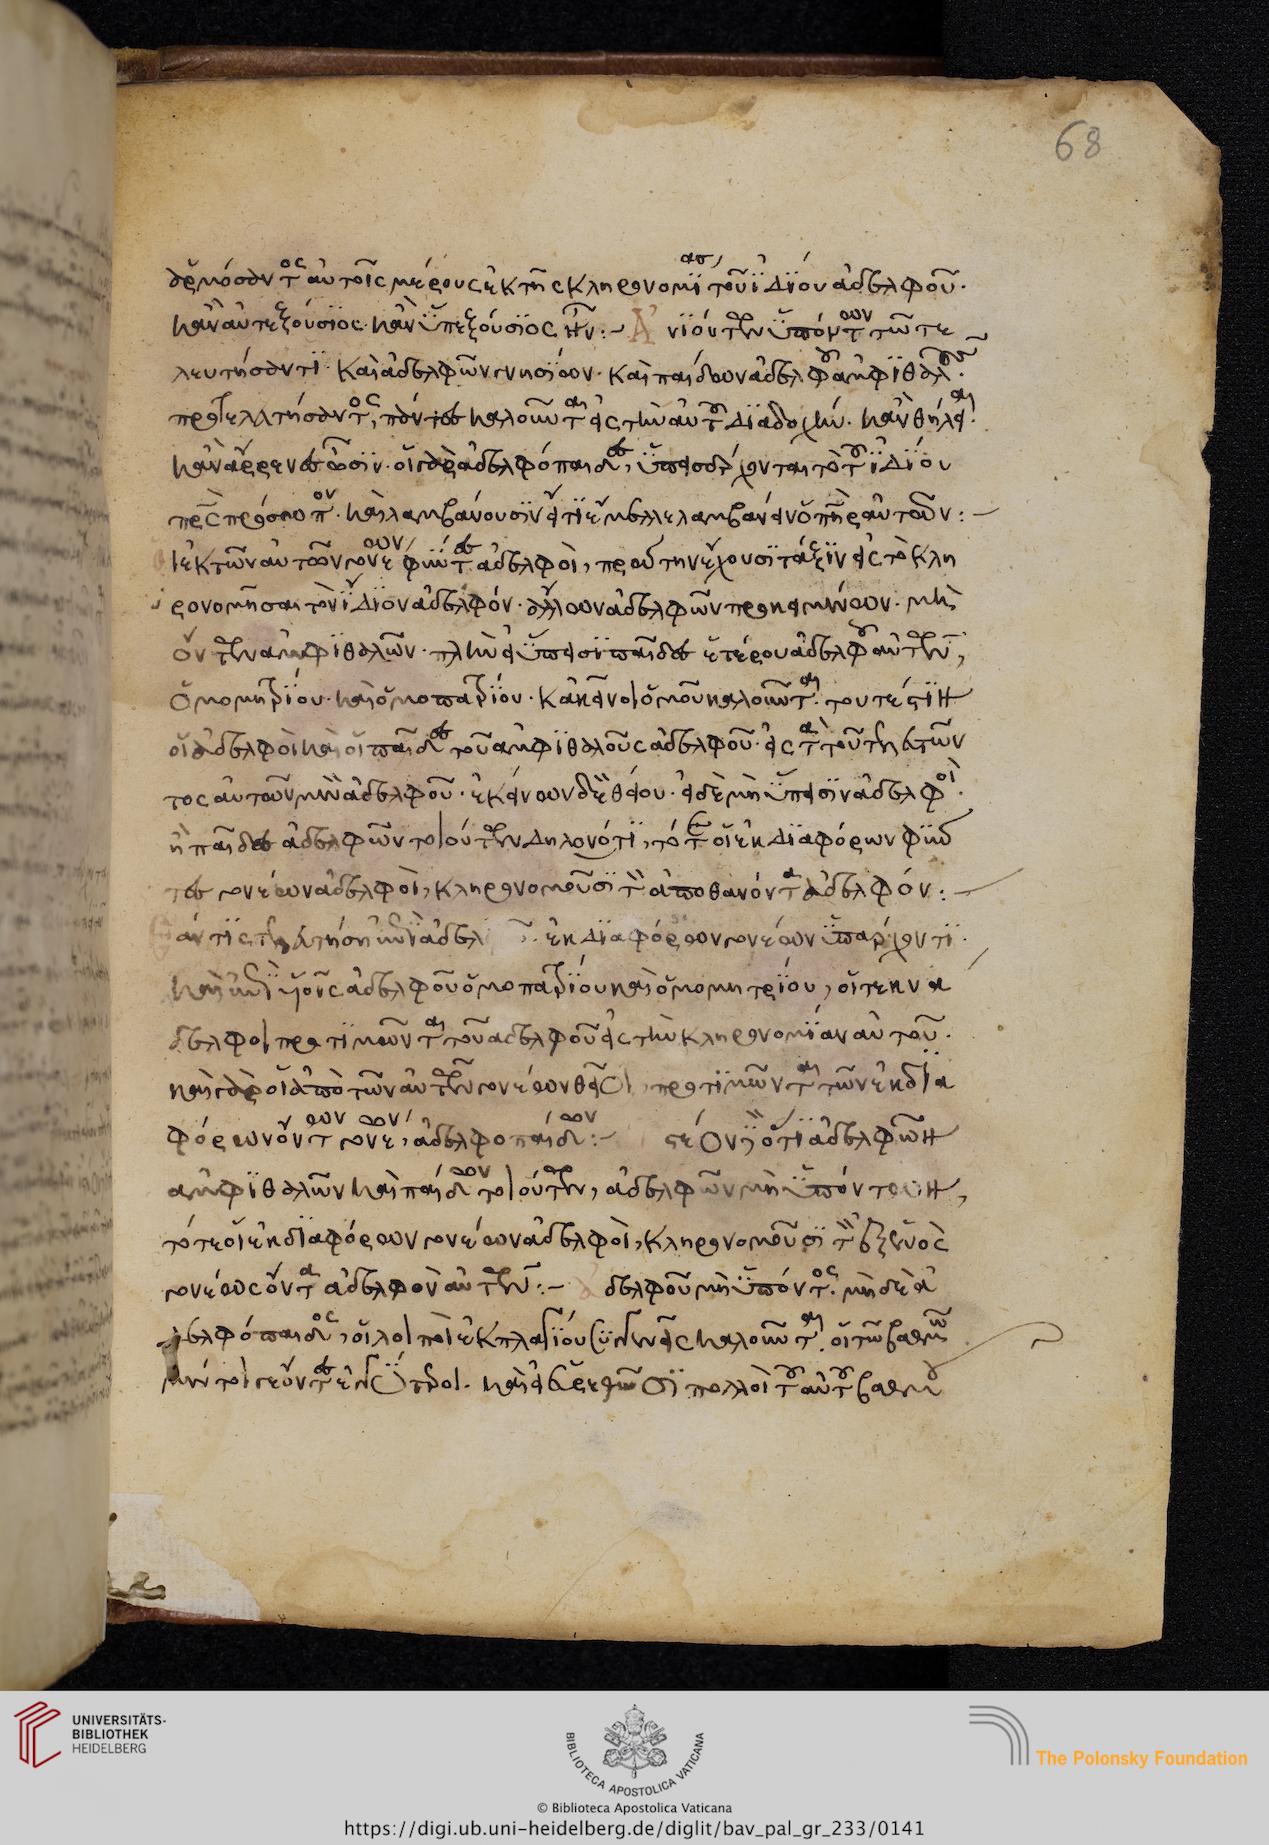 68
αὐτοῖς μέρους ἐκ τῆς κληρονομίας τοῦ ἰδίου ἀδελφοῦ.
κἂν αὐτεξούσιος. κἂν ὑπεξούσιος ἦν:-
λευτήσαντι. καὶ ἀδελφῶν γνησίων. καὶ παίδων ἀδελφοῦ ἀμφιθαλοῦς
πάντες καλοῦνται εἰς τὴν αὐτοῦ διαδοχήν. κἂν θήλειαι.
κἂν ἄρρενες ὦσιν. οἱ γὰρ ἀδελφόπαιδες, ὑπεισέρχονται τὸ τοῦ ἰδίου
πατρὸς πρόσωπον. καὶ λαμβάνουσιν εἴ τι ἔμελλε λαμβάνειν ὁ πατὴρ αὐτῶν:-
ἐκ τῶν αὐτῶν γονέων φύντες ἀδελφοὶ, πρώτην ἔχουσι τάξιν εἰς τὸ κλη
ρονομῆσαι τὸν ἴδιον ἀδελφόν. ἄλλων ἀδελφῶν προκειμένων. μὴ
ὄντων ἀμφιθαλῶν. πλὴν εἰ ὕπεισι παῖδες ἑτέρου ἀδελφοῦ αὐτῶν,
ὁμομητρίου. καὶ ὁμοπατρίου. κἀκεῖνοι ὁμοῦ καλοῦνται. τουτέστιν
οἱ ἀδελφοὶ καὶ οἱ παῖδες τοῦ ἀμφιθαλοῦς ἀδελφοῦ. εἰς τὰ τοῦ τελευτῶν
τος αὐτῶν μὲν ἀδελφοῦ. ἐκείνων δὲ θείου. εἰ δὲ μὴ ὕπεισιν ἀδελφοὶ.
ἢ παῖδες ἀδελφῶν τοιούτων δηλονότι, τότε οἱ ἐκ διαφόρων φύν
τες γονέων ἀδελφοὶ, κληρονομοῦσι τὸν ἀποθανόντα ἀδελφόν:-
ἐάν τις τελευτήσῃ ἐπὶ ἀδελφῷ ἐκ διαφόρων γονέων ὑπάρχοντι.
καὶ ἐπὶ υἱοῖς ἀδελφοῦ ὁμοπατρίου καὶ ὁμομητρίου, οἱ τέκνα
δελφοι προτιμῶνται τοῦ ἀδελφοῦ εἰς τὴν κληρονομίαν αὐτοῦ.
καὶ γὰρ οἱ ἀπὸ τῶν αὐτῶν γονέων θεῖοι, προτιμῶνται τῶν ἐκ δια
φόρων ὄντων γονέων, ἀδελφοπαίδων:- ὅτι ἀδελφῶν
ἀμφιθαλῶν καὶ παίδων τοιούτων, ἀδελφῶν μὴ ὑπόντων,
τότε οἱ ἐκ διαφόρων γονέων ἀδελφοὶ, κληρονομοῦσι τὸν ἐξ ἑνὸς
γονέως ὄντα ἀδελφὸν αὐτῶν:- ἀδελφοῦ μὴ ὑπόντος. μηδὲ ἀ
δελφόπαιδος, οἱ λοιποὶ ἐκ πλαγίου συγγενεῖς καλοῦνται. οἱ τῷ βαθμῷ
μέντοι γε ὄντες ἐγγύτεροι. καὶ εἰ εὑρεθῶσι πολλοὶ τοῦ αὐτοῦ βαθμοῦ
UNIVERSITÄTS-
BIBLIOTHEK
HEIDELBERG
BIBLIOTECA APOSTOLICA VATICANA
The Polonsky Foundation
© Biblioteca Apostolica Vaticana
https://digi.ub.uni-heidelberg.de/diglit/bav_pal_gr_233/0141